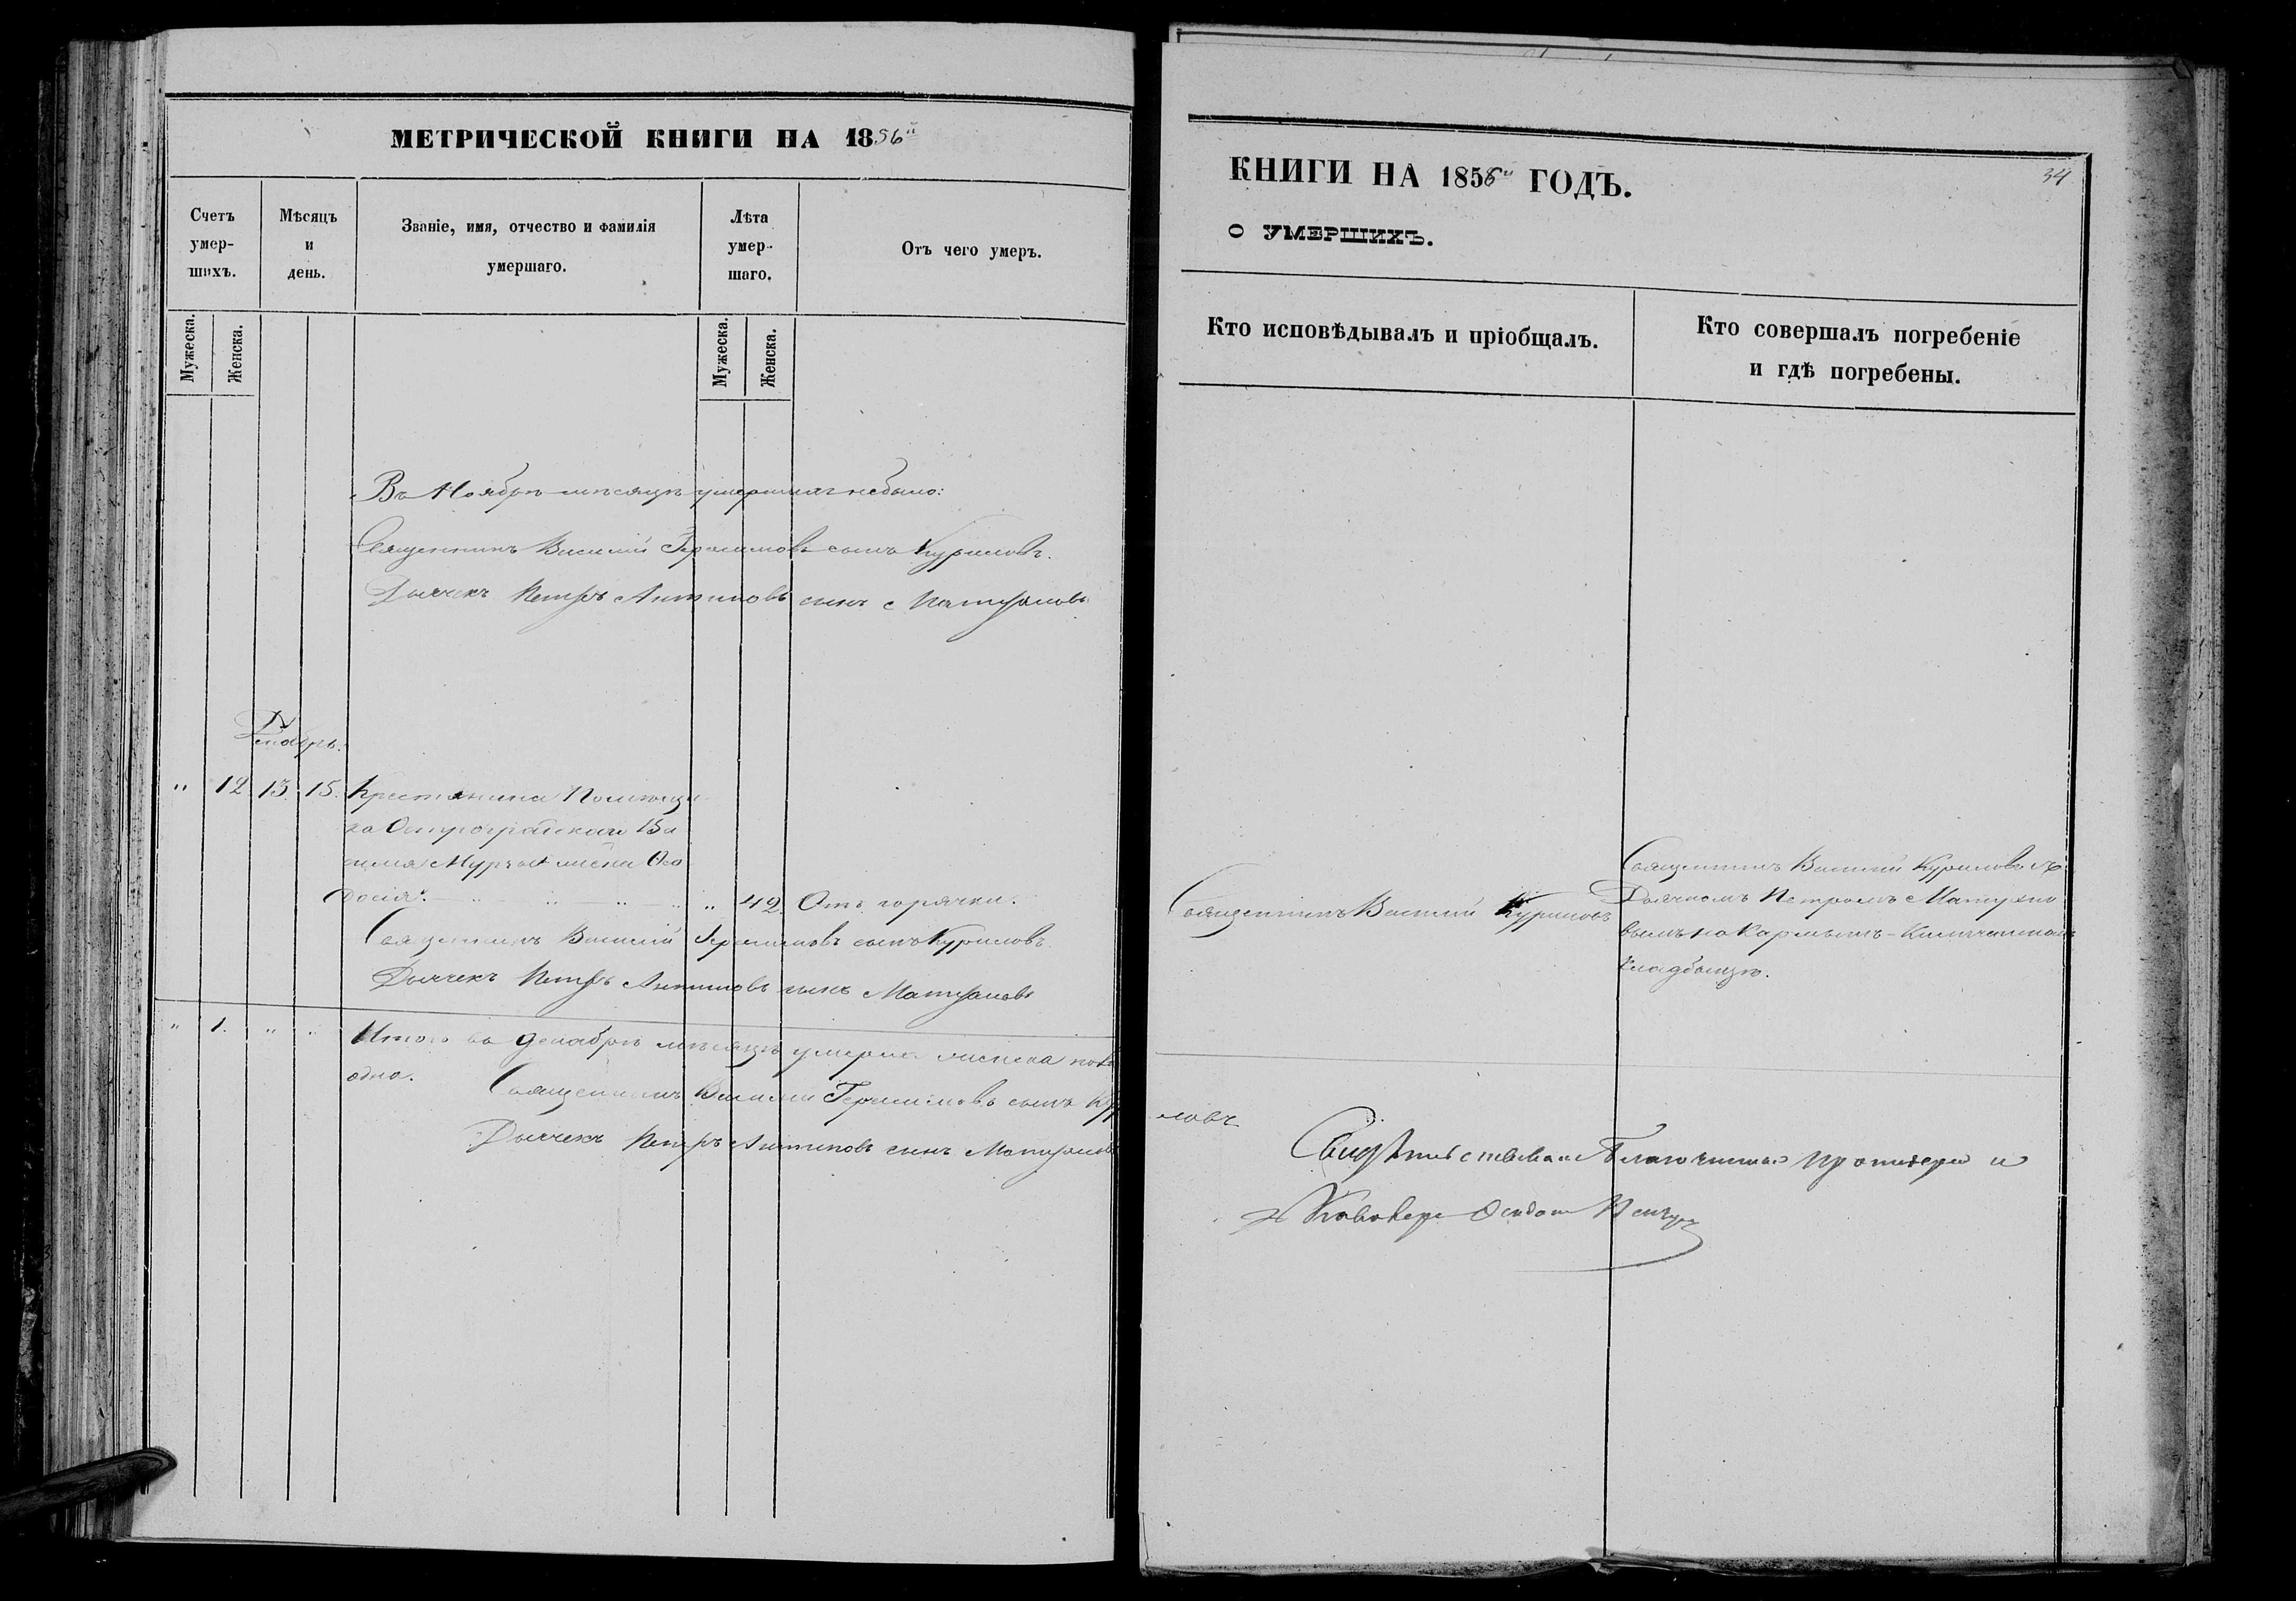 МЕТРИЧЕСКОЙ КНИГИ НА 1856й
Счетъ умер-шихъ.
Мѣсяцъ и день.
Званіе, имя, отчество и фамилія умершаго.
Лѣта умер-шаго.
Отъ чего умеръ.
Мужеска.
Женска.
Мужеска.
Женска.
Въ Ноябрѣ мѣсяцѣ умершихъ небыло:
Священникъ Василій Герасимовъ сынъ Куриловъ.
Дьячекъ Петръ Антиповъ сынъ
Декабрь.
" 12. 13. 15. Крестьянина Помѣщи
ка Остроградскаго Ва
силія жена Ѳео
досія. " 42. Отъ горячки.
Священникъ Василій Герасимовъ сынъ Куриловъ.
Дьячекъ Петръ Антиповъ сынъ
" 1. " " Итого въ декабрѣ мѣсяцѣ умерла женска пола
одна.
Священникъ Василій Герасимовъ сынъ Кур
Дьячекъ Петръ Антиповъ сынъ
КНИГИ НА 1856й ГОДЪ.
34
О УМЕРШИХЪ.
Кто исповѣдывалъ и пріобщалъ.
Кто совершалъ погребеніе и гдѣ погребены.
Священникъ Василій Куриловъ
Священникъ Василій Куриловъ съ
Дьячкомъ Петромъ
вымъ на
кладбищѣ.
ловъ
Благочинный протоіерей и